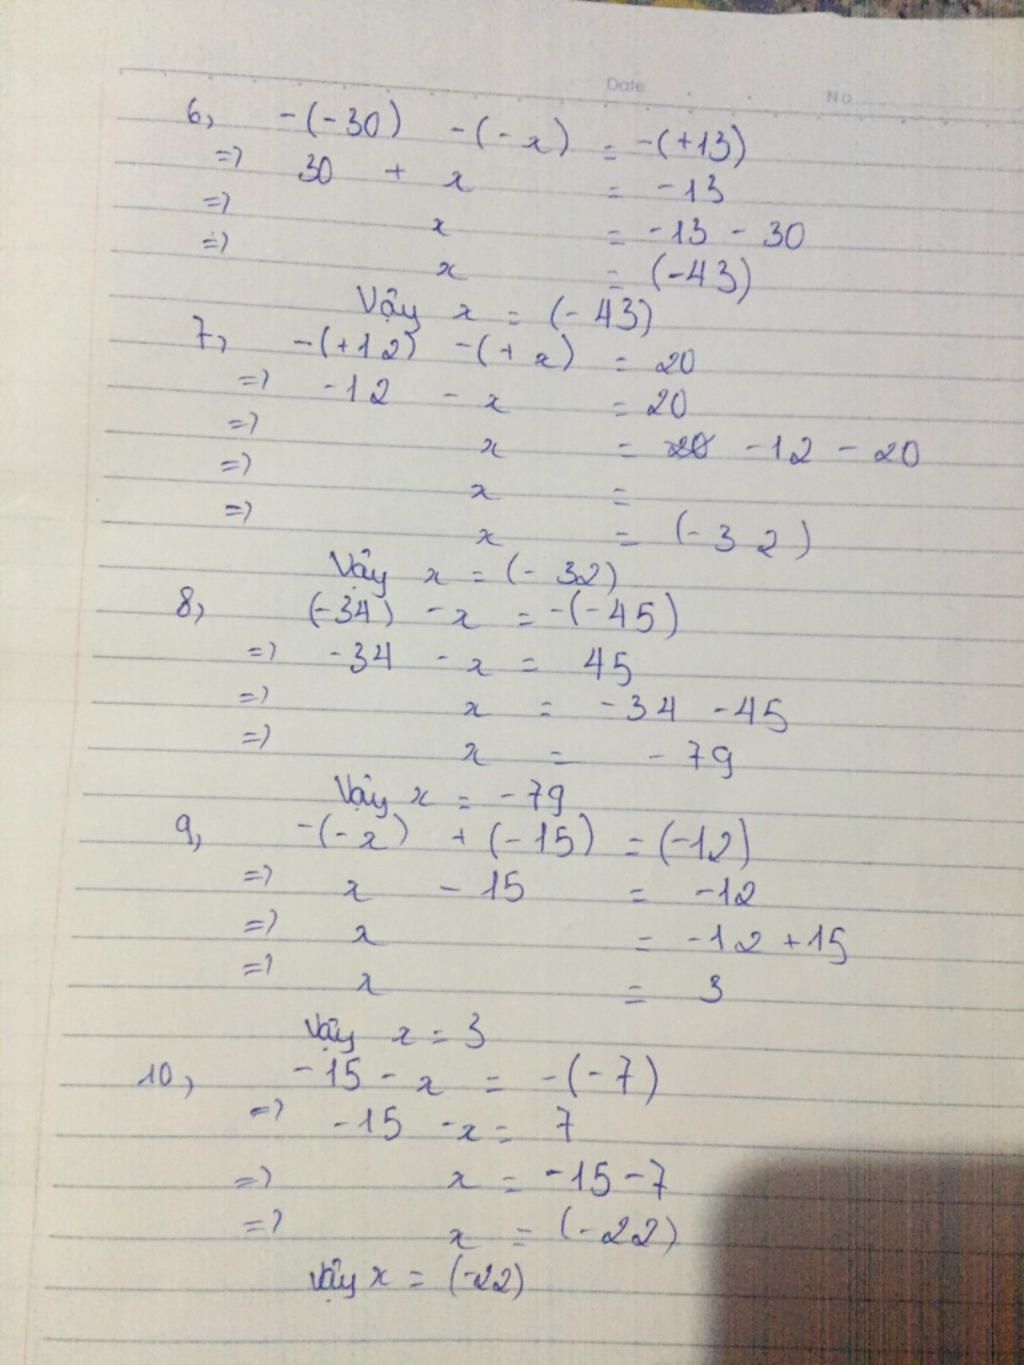 Date No
6, -(-30) -(-x) = -(+13)
=> 30 + x = -13
=> x = -13 - 30
=> x = (-43)
Vậy x = (-43)
7, -(+12) -(+x) = 20
=> -12 - x = 20
=> x = -12 - 20
=> x =
=> x = (-32)
Vậy x = (-32)
8, (-34) -x = -(-45)
=> -34 -x = 45
=> x = -34 -45
=> x = -79
Vậy x = -79
9, -(-x) + (-15) = (-12)
=> x - 15 = -12
=> x = -12 +15
=> x = 3
Vậy x = 3
10, -15 - x = -(-7)
=> -15 -x = 7
=> x = -15-7
=> x = (-22)
Vậy x = (-22)